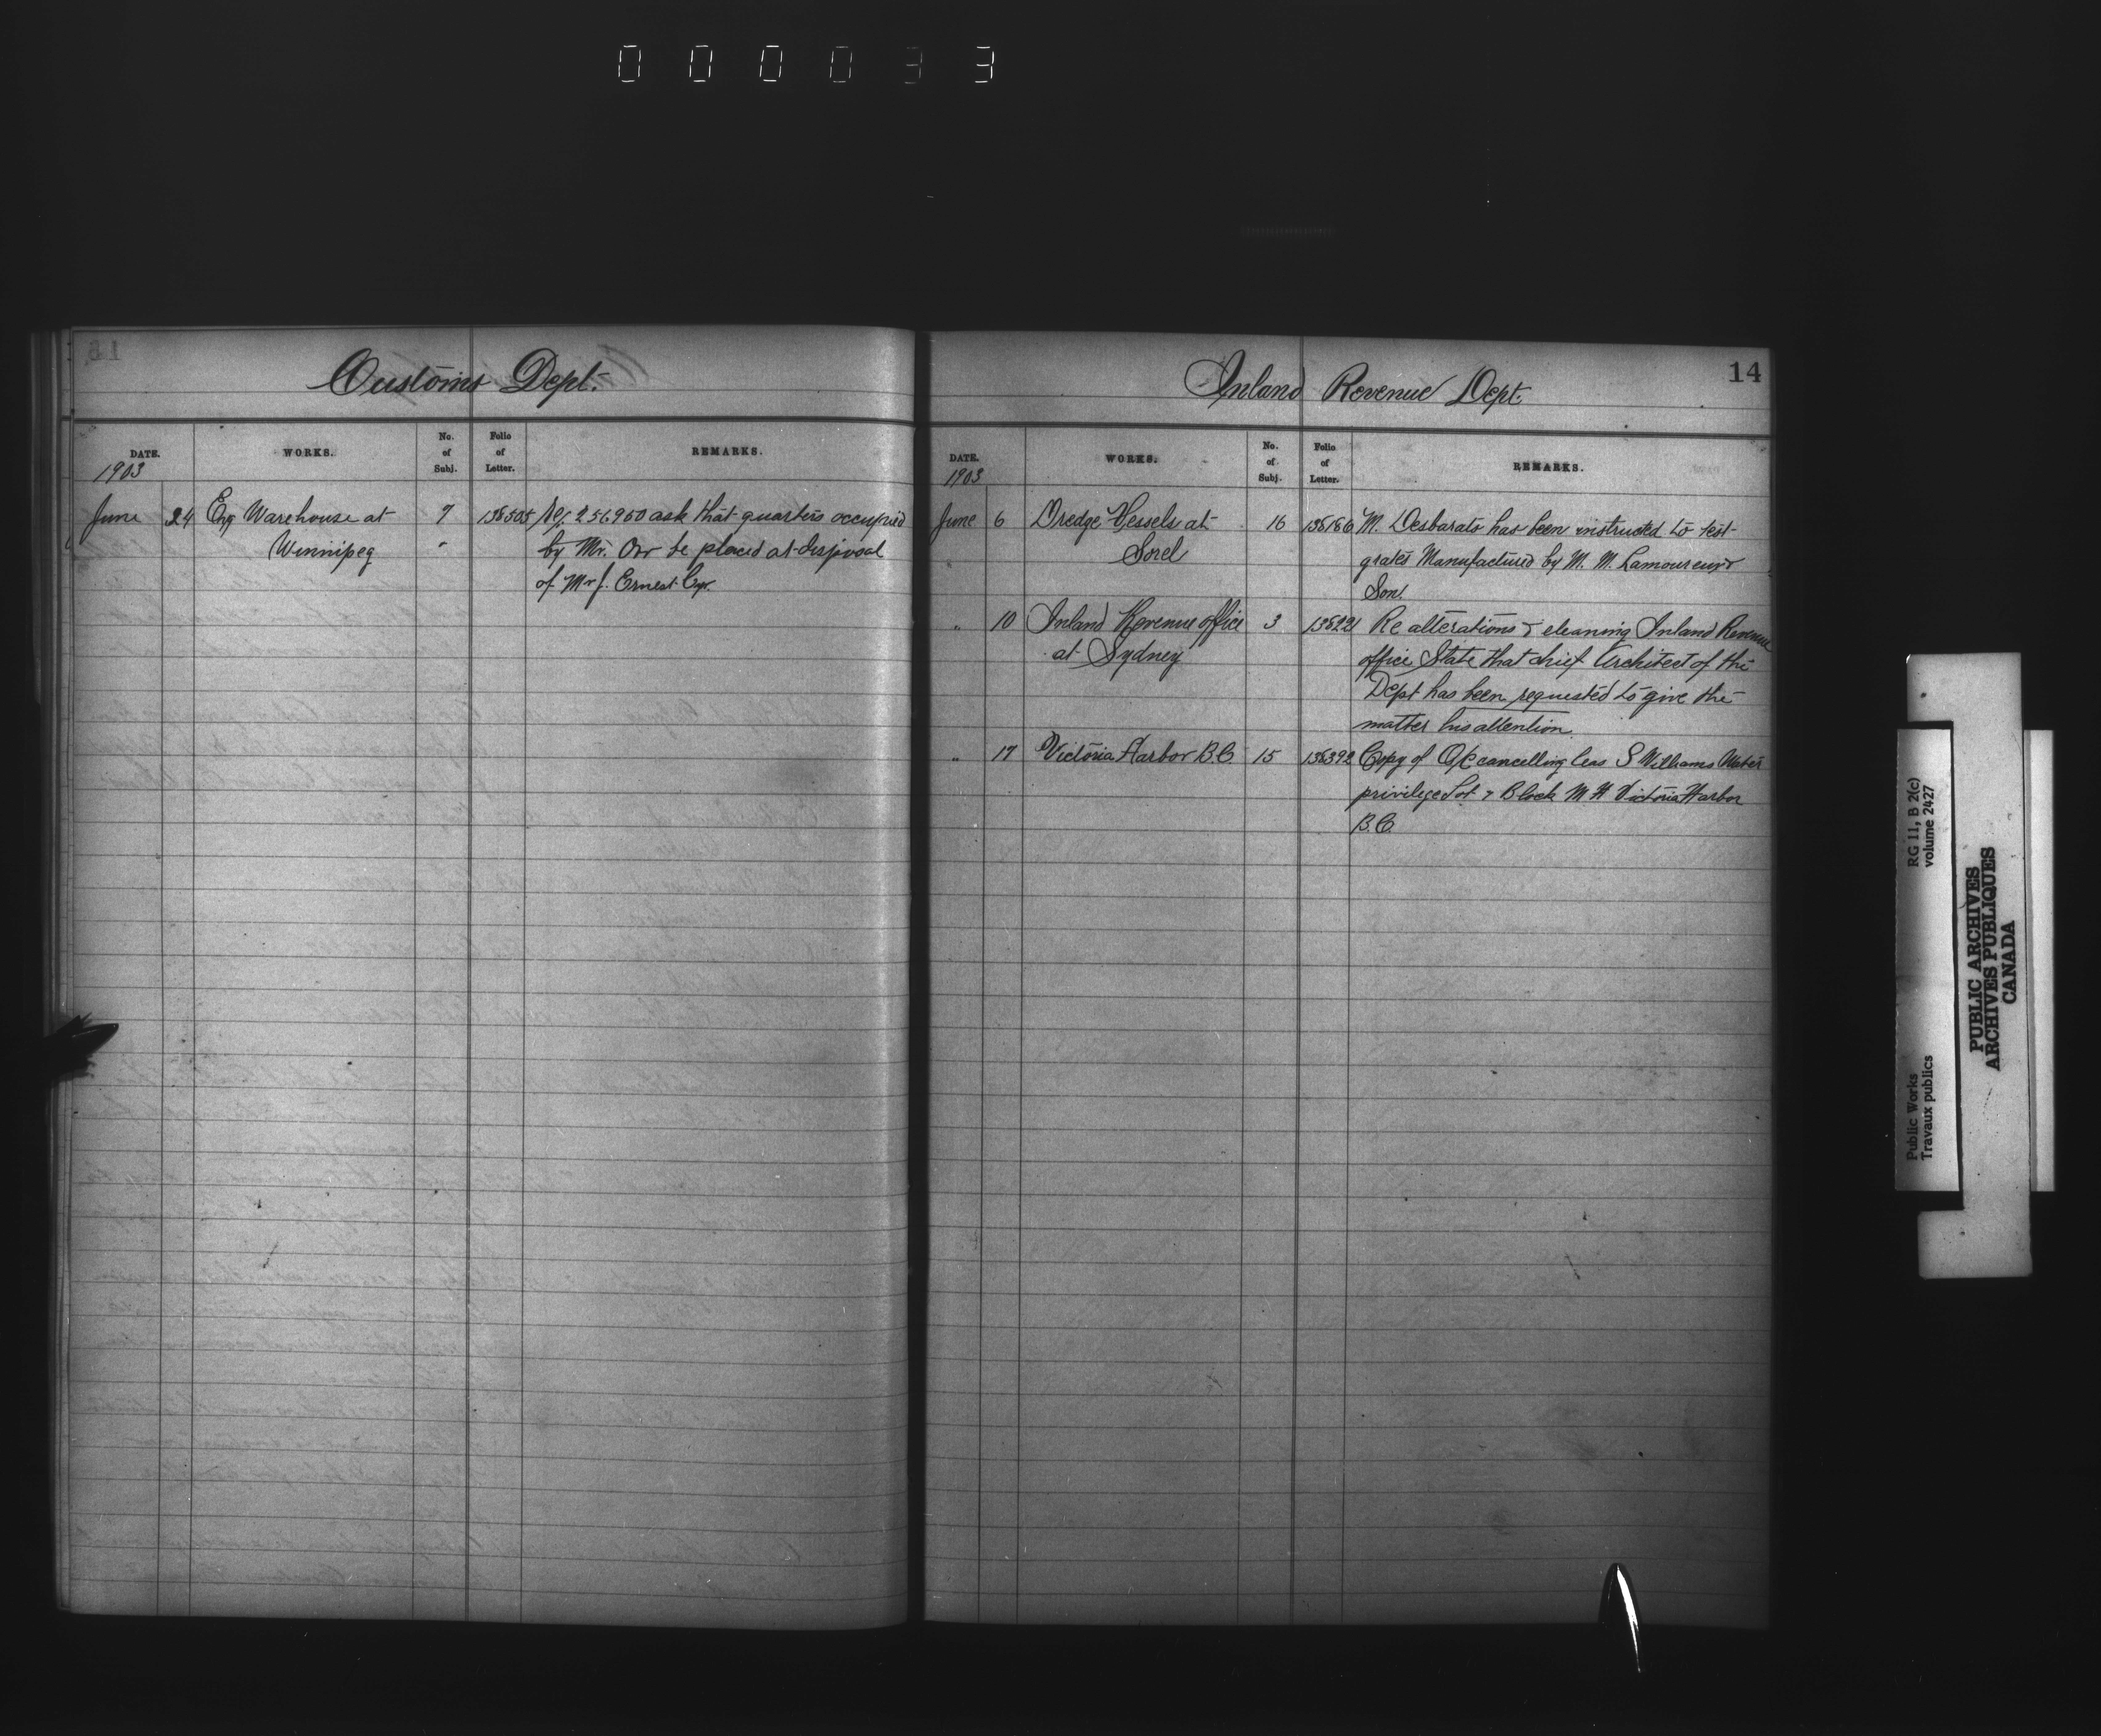 000033
Customs Dept.
DATE. WORKS. No. of Subj. Folio of Letter. REMARKS.
1903
June 24 Exg Warehouse at 7 138505 Ref 256960 ask that quarters occupied
Winnipeg by Mr. Orr be placed at disposal
of Mr J. Ernest Cyr.
14
Inland Revenue Dept.
DATE. WORKS. No. of Subj. Folio of Letter. REMARKS.
1903
June 6 Dredge Vessels at 16 138166 M. Desbarats has been instructed to test
Sorel grates Manufactured by M. M. Lamoureux &
Son.
" 10 Inland Revenue office 3 138221 Re alterations & cleaning Inland Revenue
at Sydney office State that chief Architect of the
Dept has been requested to give the
matter his attention
" 17 Victoria Harbor B.C. 15 138392 Copy of O/C cancelling leas S Williams Water
privilege Lot 7 Block M H Victoria Harbor
B.C.
RG 11, B 2(c)
volume 2427
Public Works
Travaux publics
PUBLIC ARCHIVES
ARCHIVES PUBLIQUES
CANADA